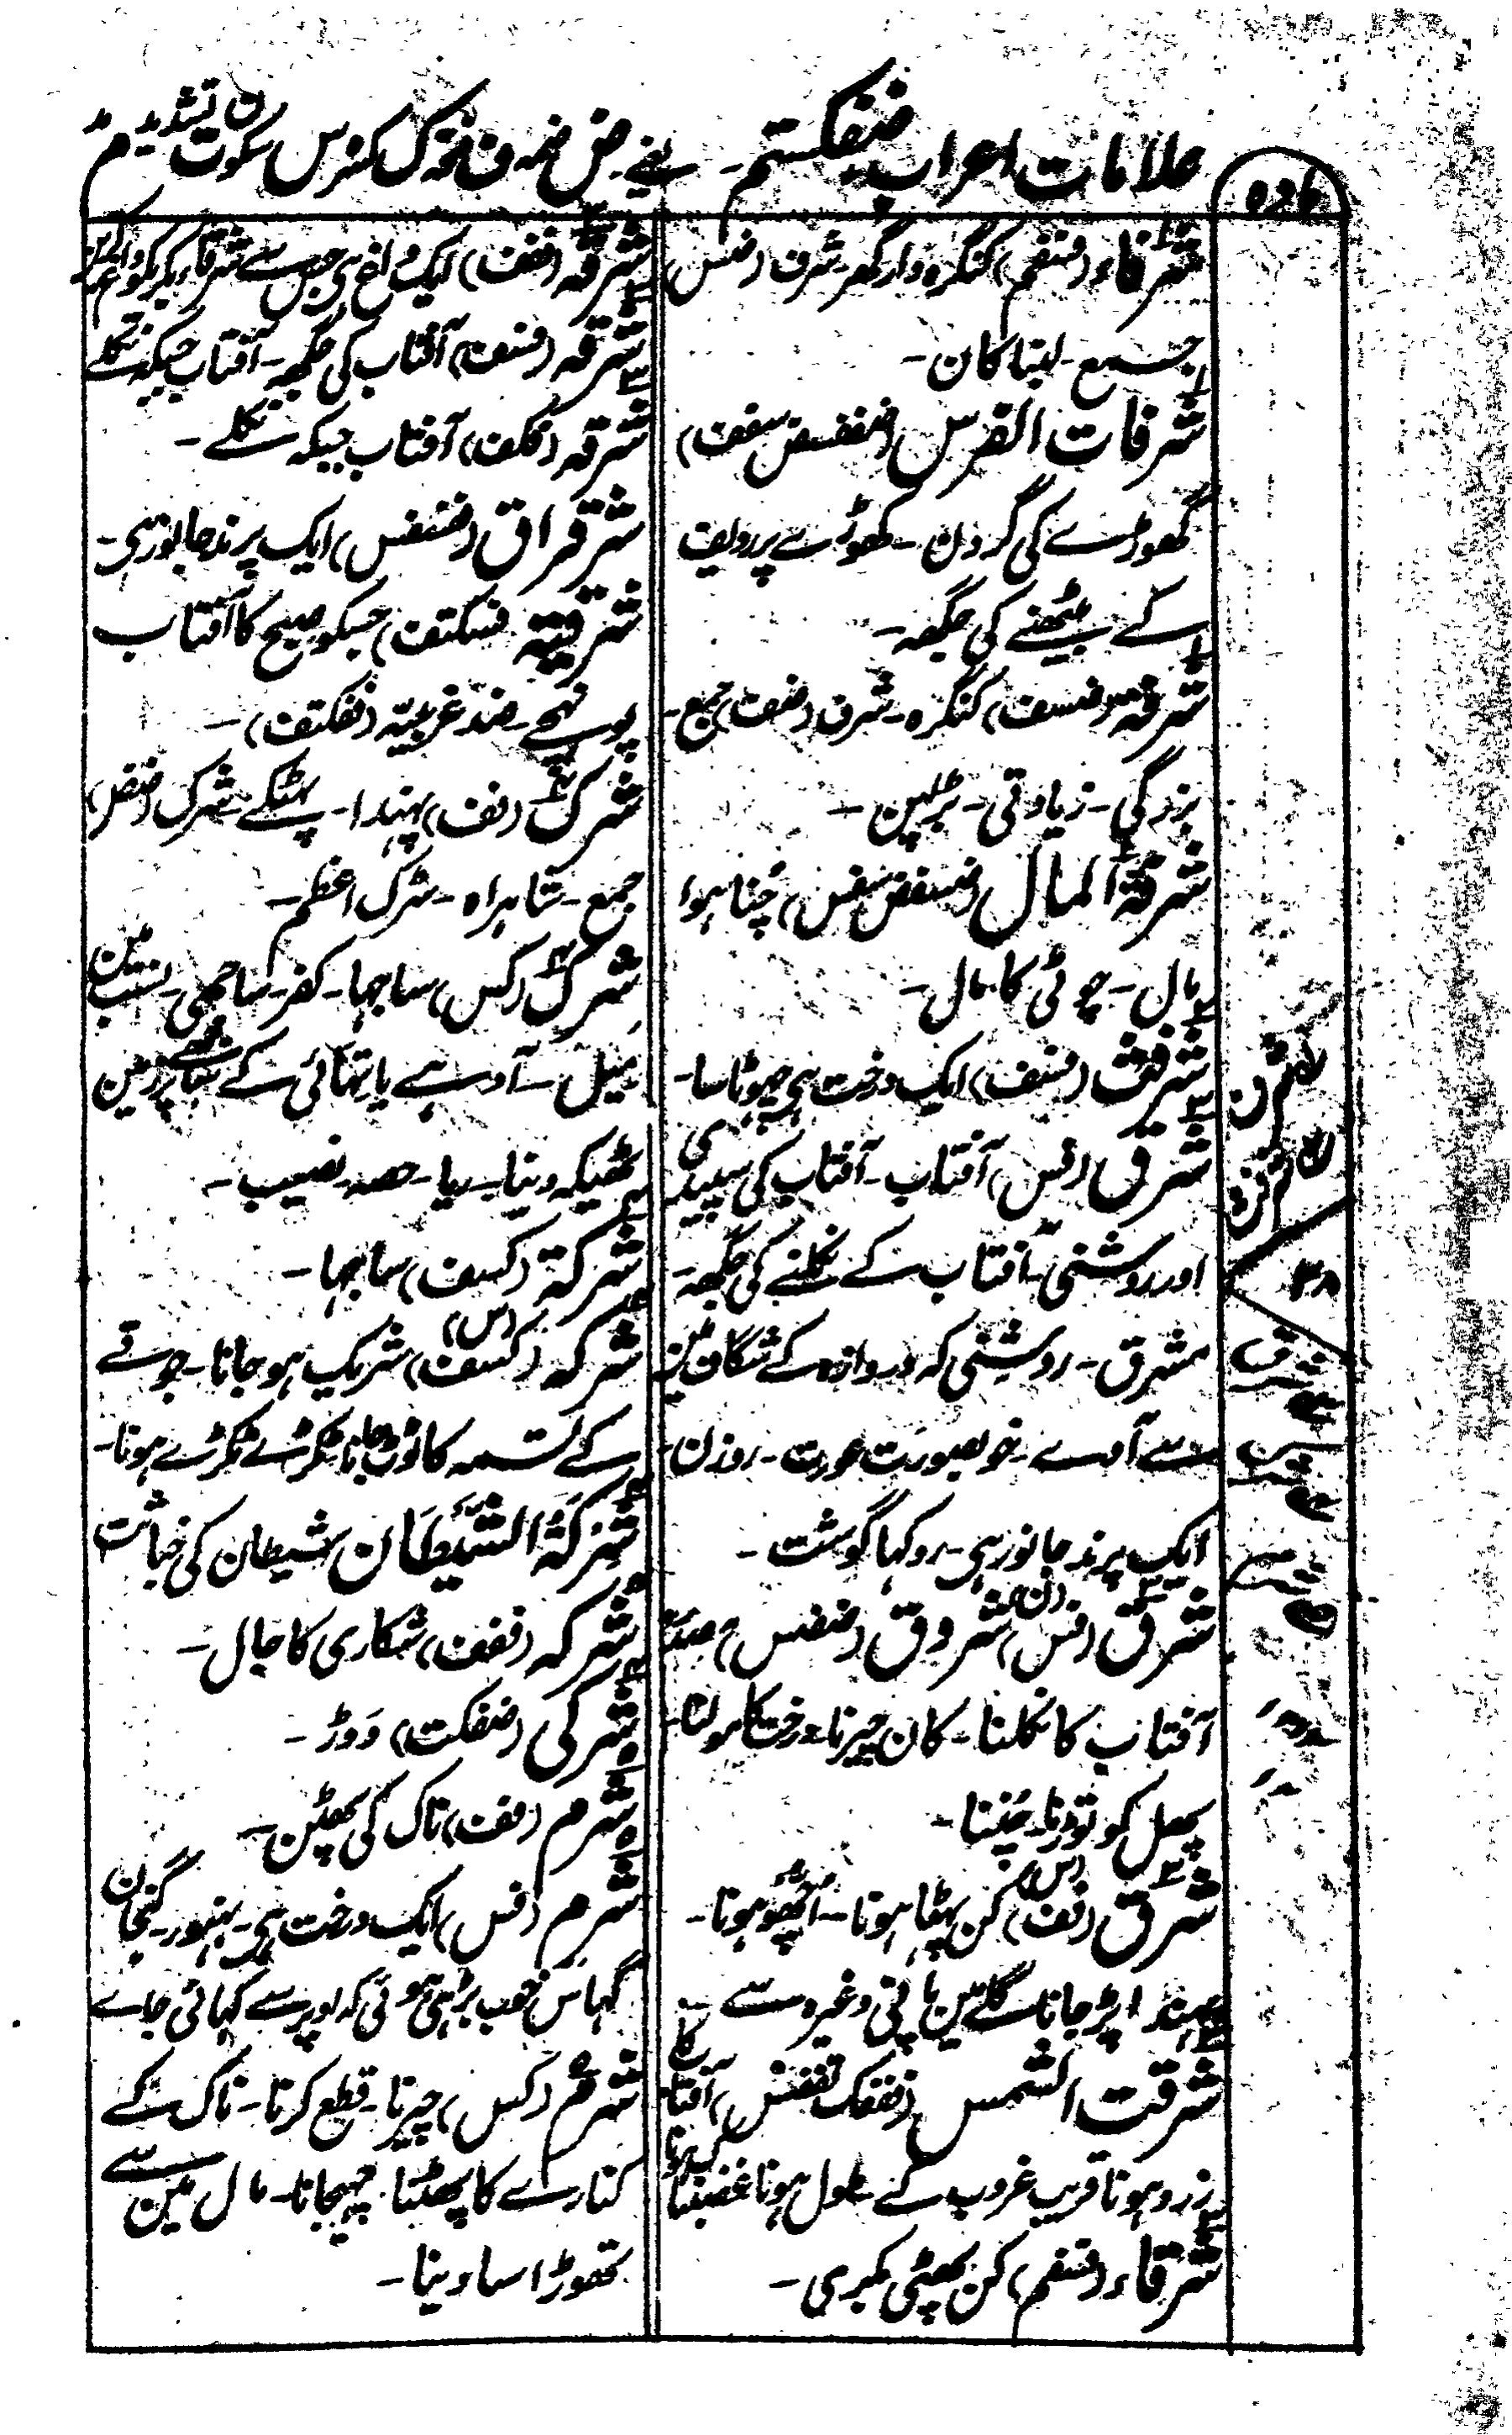 علامات اعراب ضفکستم ۔ یعنے ض ضمہ ف فتحہ ک کسرہ س سکوت ن تشدید م مد
شرفاء (فسفم) کنگرہ دار گھر شرف (ضس)
جمع ۔ لنبا کان ۔
شرفات الفرس (ضففسض سفت)
گھوڑے کی گردن ۔ گھوڑے پر ردیف
کے بیٹھنے کی جگھہ ۔
شرفہ (ضسف) کنگرہ ۔ شرف (ضف) جمع ۔
بزرگی ۔ زیادتی ۔ بڑاپن ۔
شرفۃ المال (ضسفض سفس) چنا ہوا
مال ۔ چوٹی کا مال ۔
شرفث (فسف) ایک درخت ہی چھوٹا سا ۔
شرق (فس) آفتاب ۔ آفتاب کی سپیدی
اور روشنی ۔ آفتاب کے نکلنے کی جگھہ ۔
مشرق ۔ روشنی کہ دروازہ کے شگاف مین
سے آوے ۔ خوبصورت عورت ۔ روزن ۔
ایک پرند جانور ہی ۔ روکہا گوشت ۔
شرق (فس) شروق (ضضس) (ن ض)
آفتاب کا نکلنا ۔ کان چیرنا ۔
پھل کو توڑنا ۔ چننا ۔
شرق (فف) (س) کن پہٹا ہونا ۔ اچھو ہونا ۔
پہندا پڑجانا گلے مین پانی وغیرہ سے ۔
شرقت الشمس آفتاب کا
زرد ہونا قریب غروب کے ۔ ملول ہونا
شرقاء (فسفم) کن پھٹی بکری ۔
شرقہ (ففف) ایک داغ ہی جس سے شرقاء بکری کو
شرقہ (فسف) آفتاب کی جگھہ ۔ آفتاب جبکہ نکلے
شرقہ (فکف) آفتاب جبکہ نکلے ۔
شرقراق ایک پرند جانور ہی ۔
شرقیۃ (فسکتف) جسکو صبح کا آفتاب
پونہچے ۔ ضد غربیۃ (ففکتف) ۔
شرک (فف) پہندا ۔ شرک (ضض)
جمع ۔ شاہراہ ۔ سڑک اعظم ۔
شرک (کس) ساجہا ۔ کفر ۔ ساجھی ۔ نسب مین
میل ۔ آدہے یا تہائی کے بٹائے پر زمین
ٹھیکہ دینا ۔ ریا ۔ حصہ ۔ نصیب ۔
شرکۃ (کسف) ساجہا ۔
شرکہ (کسف) (س) شریک ہو جانا ۔ جوتے
کے تسمہ کا ٹوٹ جانا ٹکڑے ٹکڑے ہونا ۔
شرکۃ الشیطان شیطان کی خباثت
شرکہ (ففف) شکاری کا جال ۔
شرکی (ضفکت) دوڑ ۔
شرم (فف) ناک کی پھٹن ۔
شرم (فس) ایک درخت ہی ۔ بہنور ۔ گنجان
گہاس خوب بڑہی ہوئی کہ اوپر سے کہائی جاے
شرم (کس) چیرنا ۔ قطع کرنا ۔ ناک کے
کنارے کا پھٹنا ۔ مال مین سے
تھوڑا سا دینا ۔